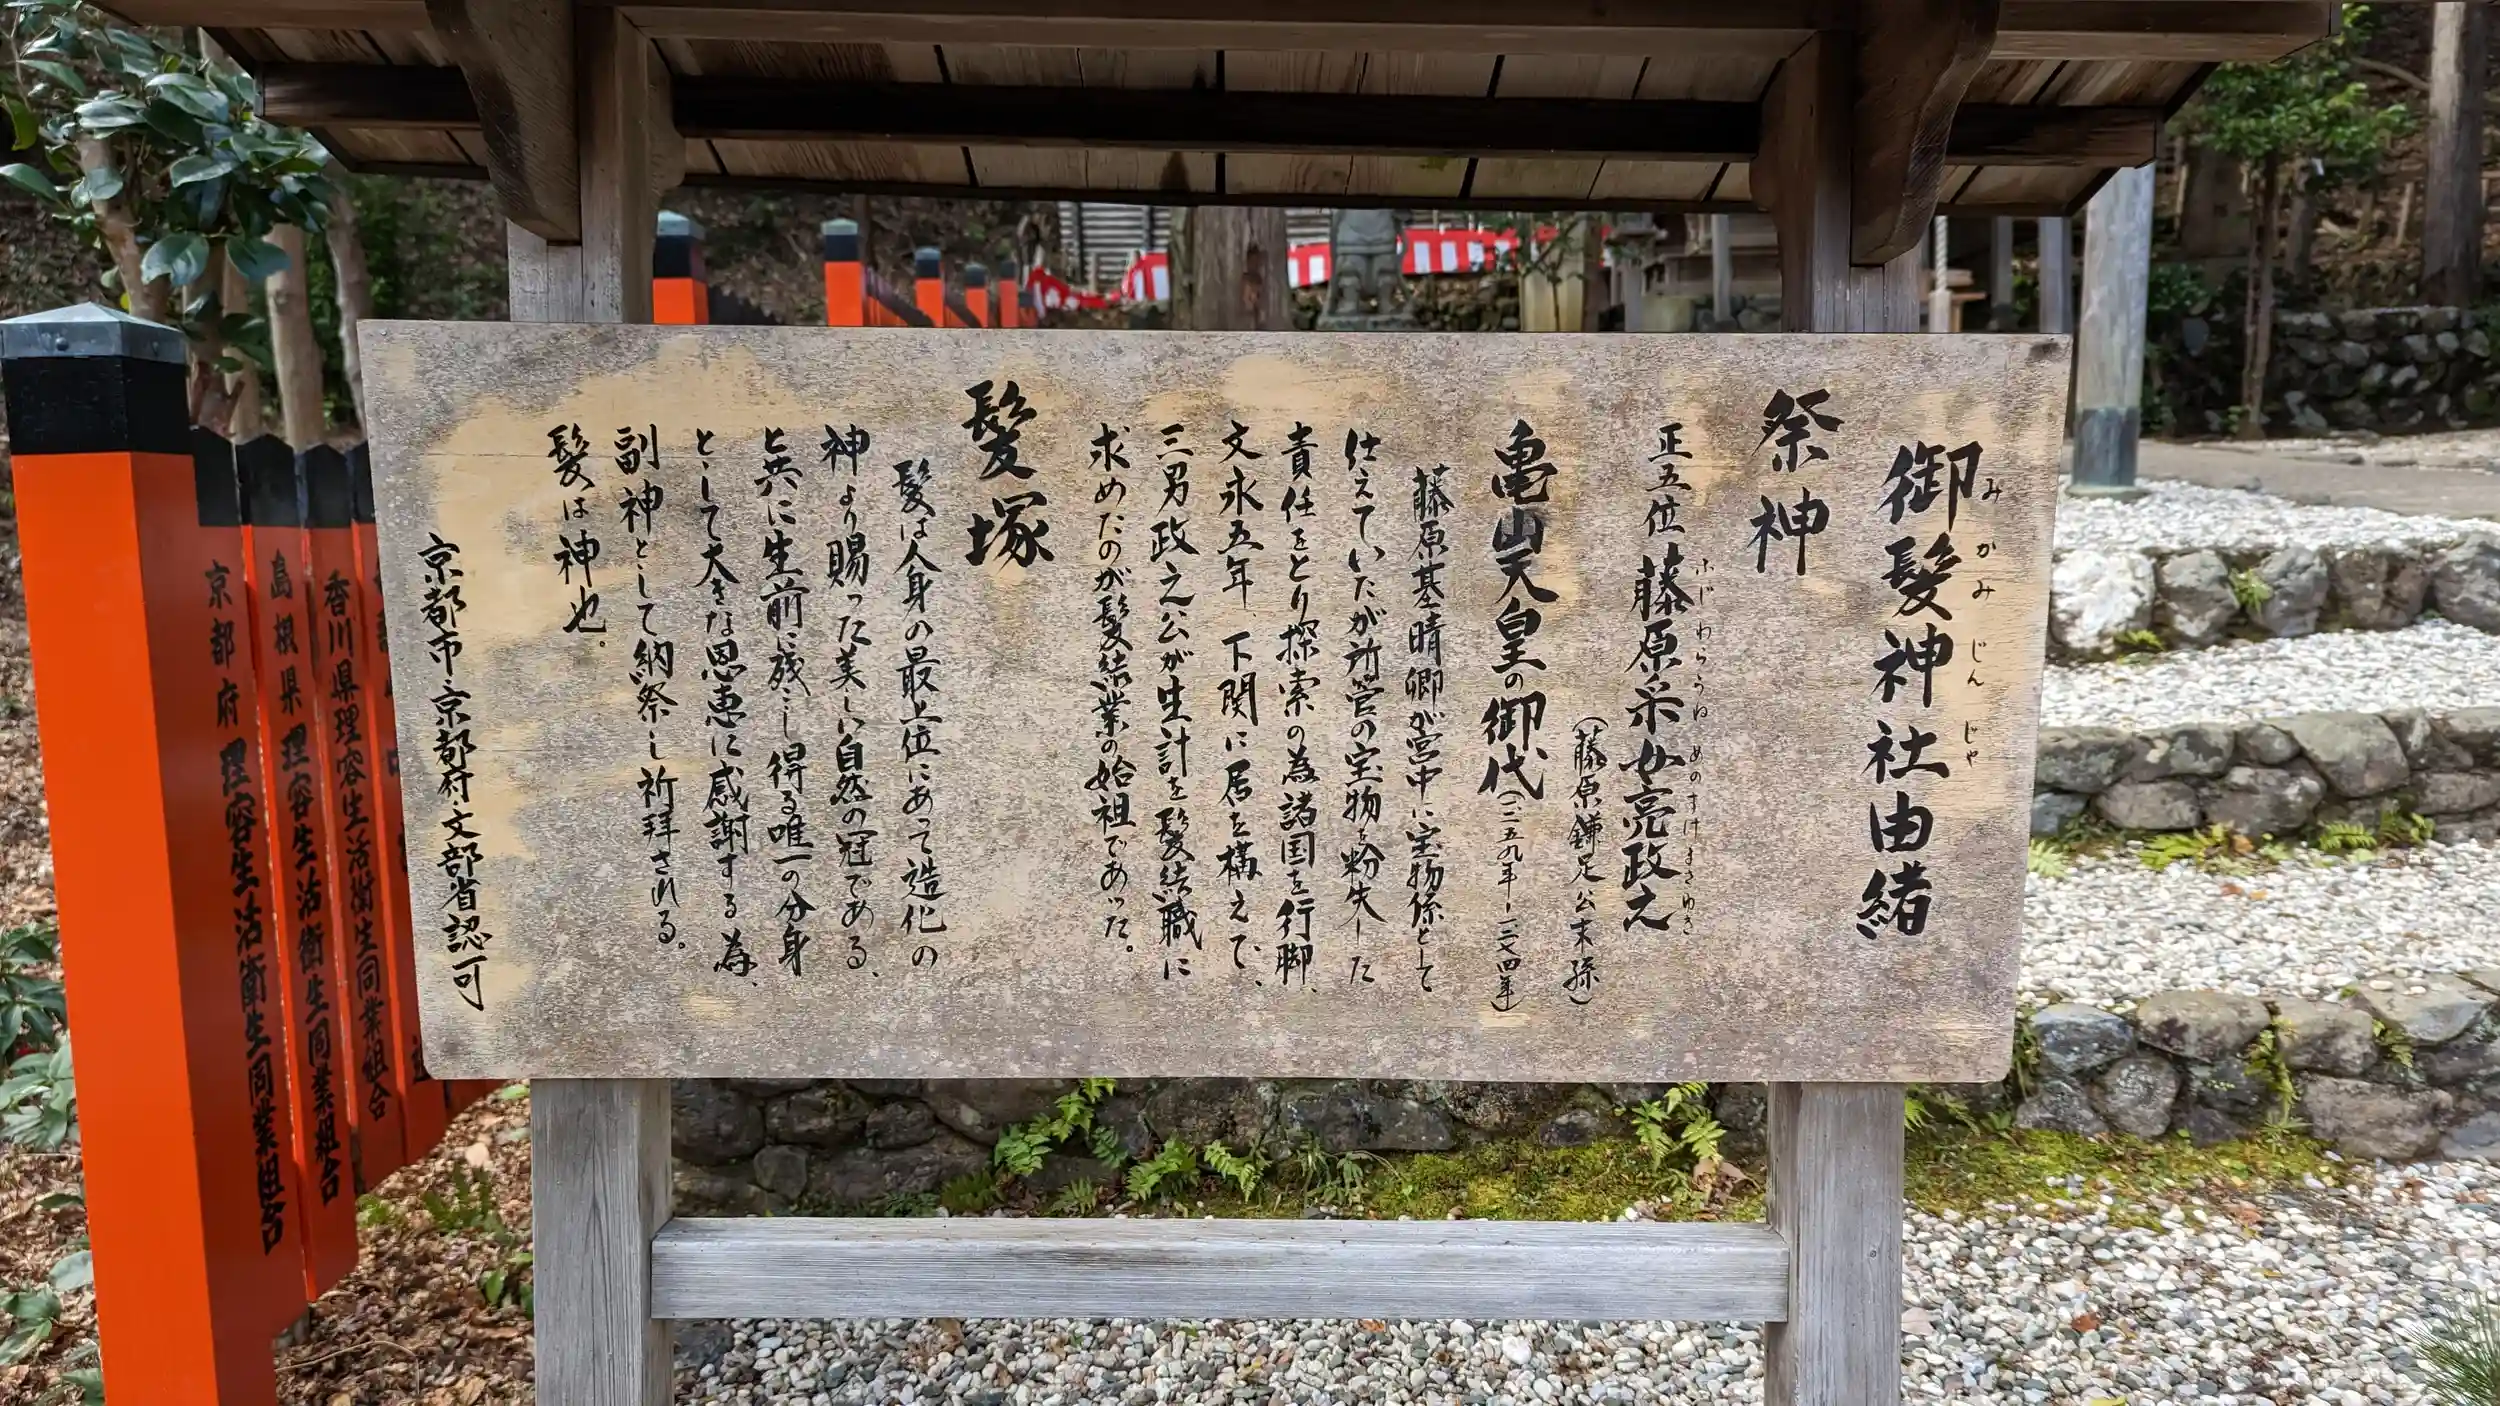 御髪神社由緒
みかみじんじゃ
祭神
正五位 藤原采女亮政之
ふじわらうねめのすけまさゆき
(藤原鎌足公末孫)
亀山天皇の御代(一二五九年ー一二七四年)
藤原基晴卿が宮中に宝物係として
仕えていたが所管の宝物を紛失した
責任をとり探索の為諸国を行脚、
文永五年、下関に居を構えて、
三男政之公が生計を髪結職に
求めたのが髪結業の始祖であった。
髪塚
髪は人身の最上位にあって造化の
神より賜った美しい自然の冠である、
と共に生前に残し得る唯一の分身
として大きな恩恵に感謝する為、
副神として納祭し祈拝される。
髪は神也。
京都市・京都府・文部省認可
香川県理容生活衛生同業組合
島根県理容生活衛生同業組合
京都府理容生活衛生同業組合